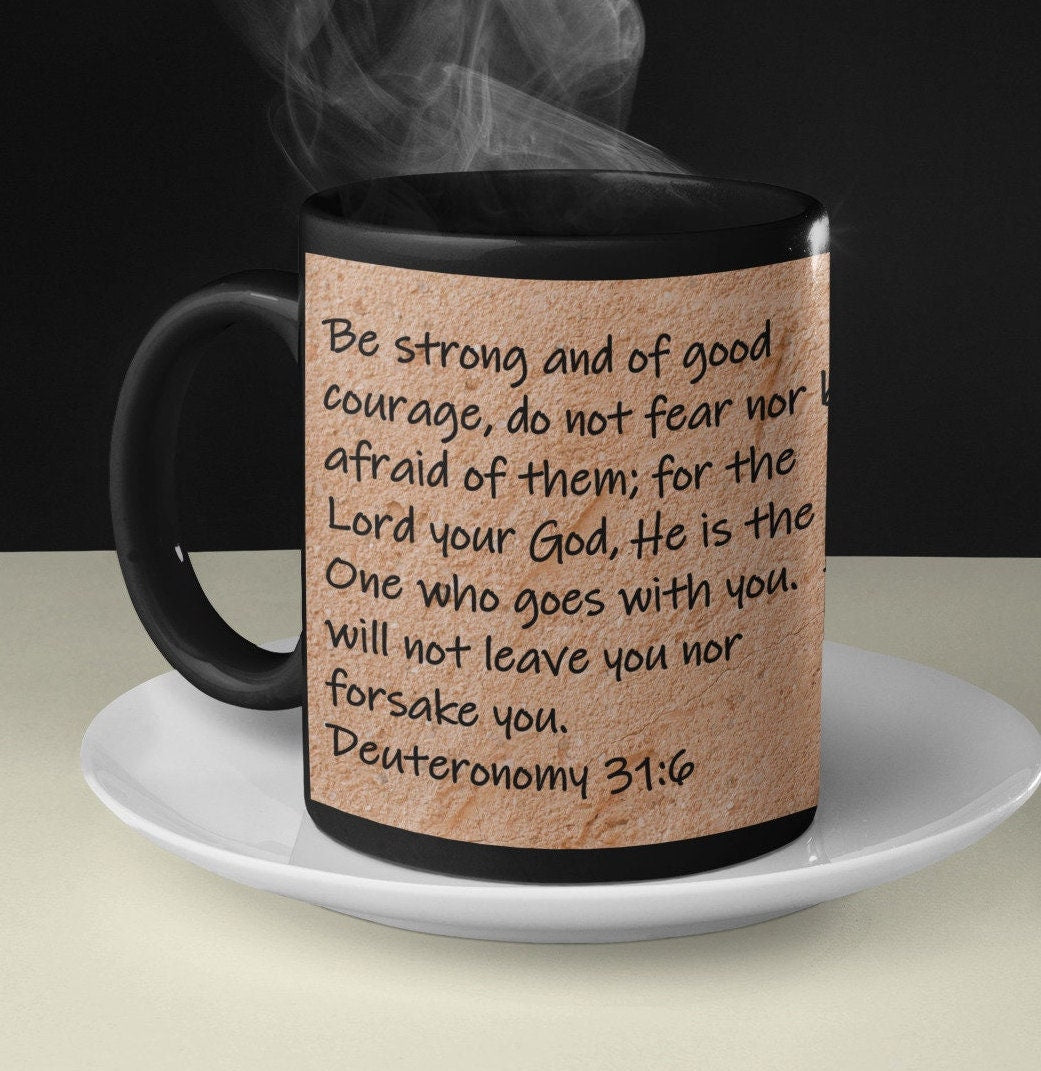 Be strong and of good
courage, do not fear nor
afraid of them; for the
Lord your God, He is the
One who goes with you.
will not leave you nor
forsake you.
Deuteronomy 31:6